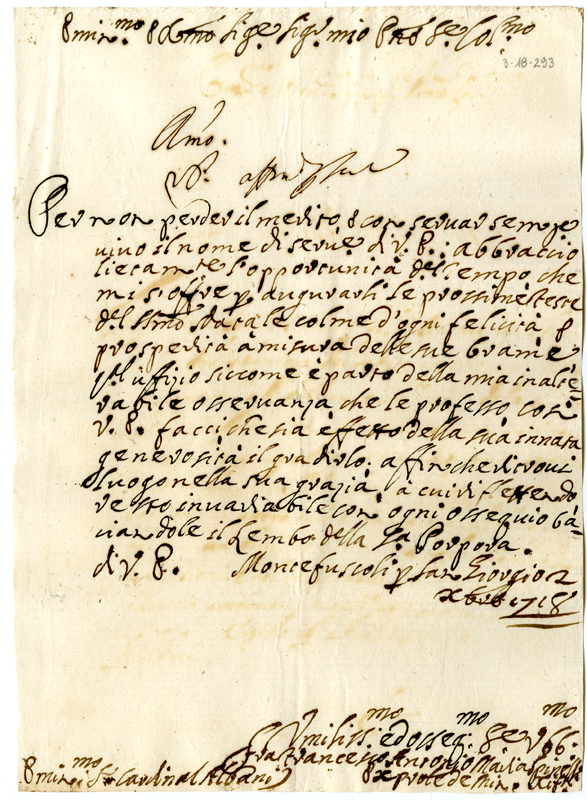 Emin.mo e Rmo Sig.e Sig.e mio Pne Se. Co.mo
3-18-293
Per non perder il merito, e conservar sempre
vivo il nome di serve di V. E.: abbraccio
lietam.te l'opportunità del tempo, che
mi s'offre p augurarli le prossime feste
del SSmo Natale colme d'ogni felicità e
prosperità à misura delle sue brame
uffizio siccome è parto della mia inalte-
rabile osservanza che le professo così
V. E. facci che sia effetto della sua innata
generosità il gradirlo, affin che ritrovi
luogo nella sua grazia, à cui riflettendo
resto invariabile con ogni ossequio ba-
ciandole il Lembo della Sa. Porpora.
di V. E. Montefuscoli p San Giorgio 2
Xbre 1718
Umiliss.mo ed osseq.mo
Fra Francesco Antonio Maria
Emin.mo Sr Cardinal Albani